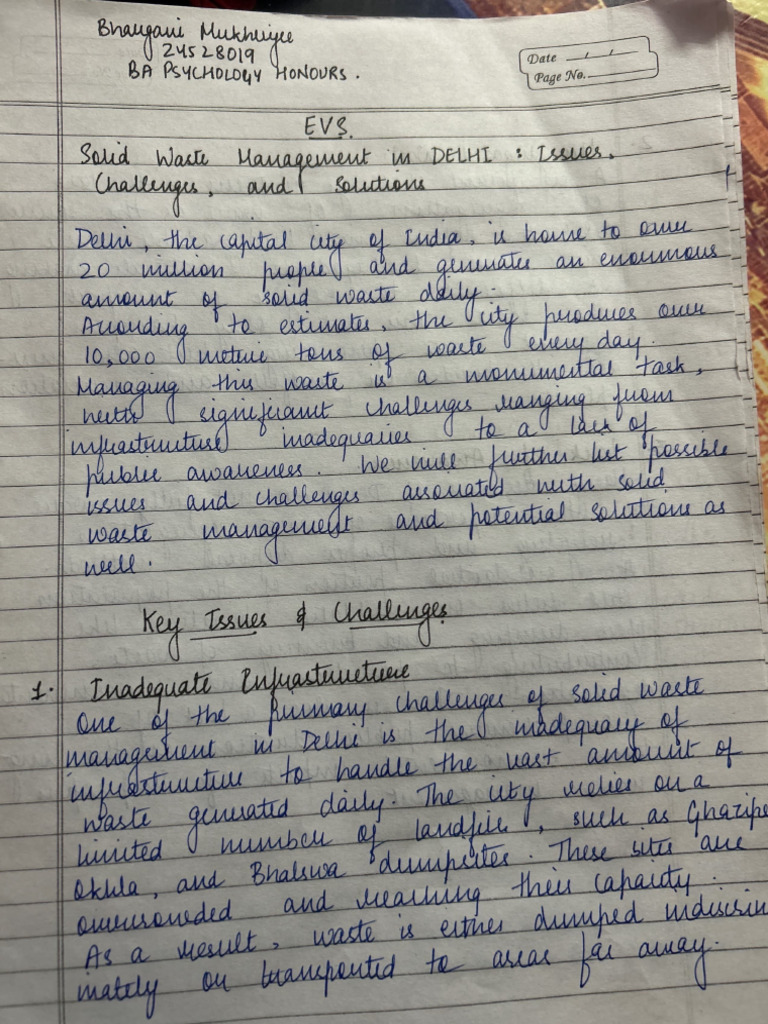 Bhargavi Mukherjee
24528019
BA PSYCHOLOGY HONOURS.
Date __/__/__
Page No.______
EVS.
Solid Waste Management in DELHI : Issues,
Challenges, and Solutions
Delhi, the capital city of India, is home to over
20 million people and generates an enormous
amount of solid waste daily.
According to estimates, the city produces over
10,000 metric tons of waste every day.
Managing this waste is a monumental task,
with significant challenges ranging from
infrastructure inadequacies to a lack of
public awareness. We will further list possible
issues and challenges associated with solid
waste management and potential solutions as
well.
Key Issues & Challenges
1. Inadequate Infrastructure
One of the primary challenges of solid waste
management in Delhi is the inadequacy of
infrastructure to handle the vast amount of
waste generated daily. The city relies on a
limited number of landfills, such as Ghazipu
Okhla, and Bhalswa dumpsites. These sites are
overcrowded and reaching their capacity.
As a result, waste is either dumped indiscrim
inately or transported to areas far away.